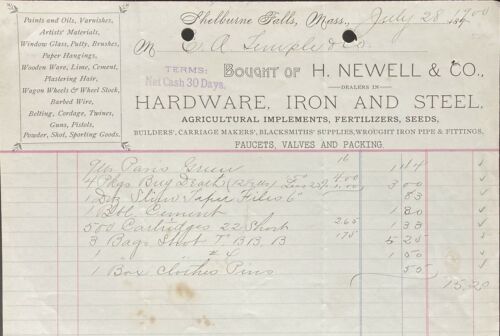 Paints and Oils, Varnishes,
Artists' Materials,
Window Glass, Putty, Brushes,
Paper Hangings,
Wooden Ware, Lime, Cement,
Plastering Hair,
Wagon Wheels & Wheel Stock,
Barbed Wire,
Belting, Cordage, Twines,
Guns, Pistols,
Powder, Shot, Sporting Goods.
Shelburne Falls, Mass., July 28 1900
M C. A. Temple & Co.
TERMS:
Net Cash 30 Days.
BOUGHT OF H. NEWELL & CO.,
DEALERS IN
HARDWARE, IRON AND STEEL,
AGRICULTURAL IMPLEMENTS, FERTILIZERS, SEEDS,
BUILDERS', CARRIAGE MAKERS', BLACKSMITHS' SUPPLIES, WROUGHT IRON PIPE & FITTINGS,
FAUCETS, VALVES AND PACKING.
Paris Green 16 1 44
4 Pkgs Bug Death 4.00 3 00
1 Doz Slim Taper Files 6" 83
1 Bbl Cement 1 80
500 Cartridges 22 Short 265 1 33
3 Bags Shot 175 5 25
1 " " # 4 1 50
1 Box Clothes Pins 55
15.20